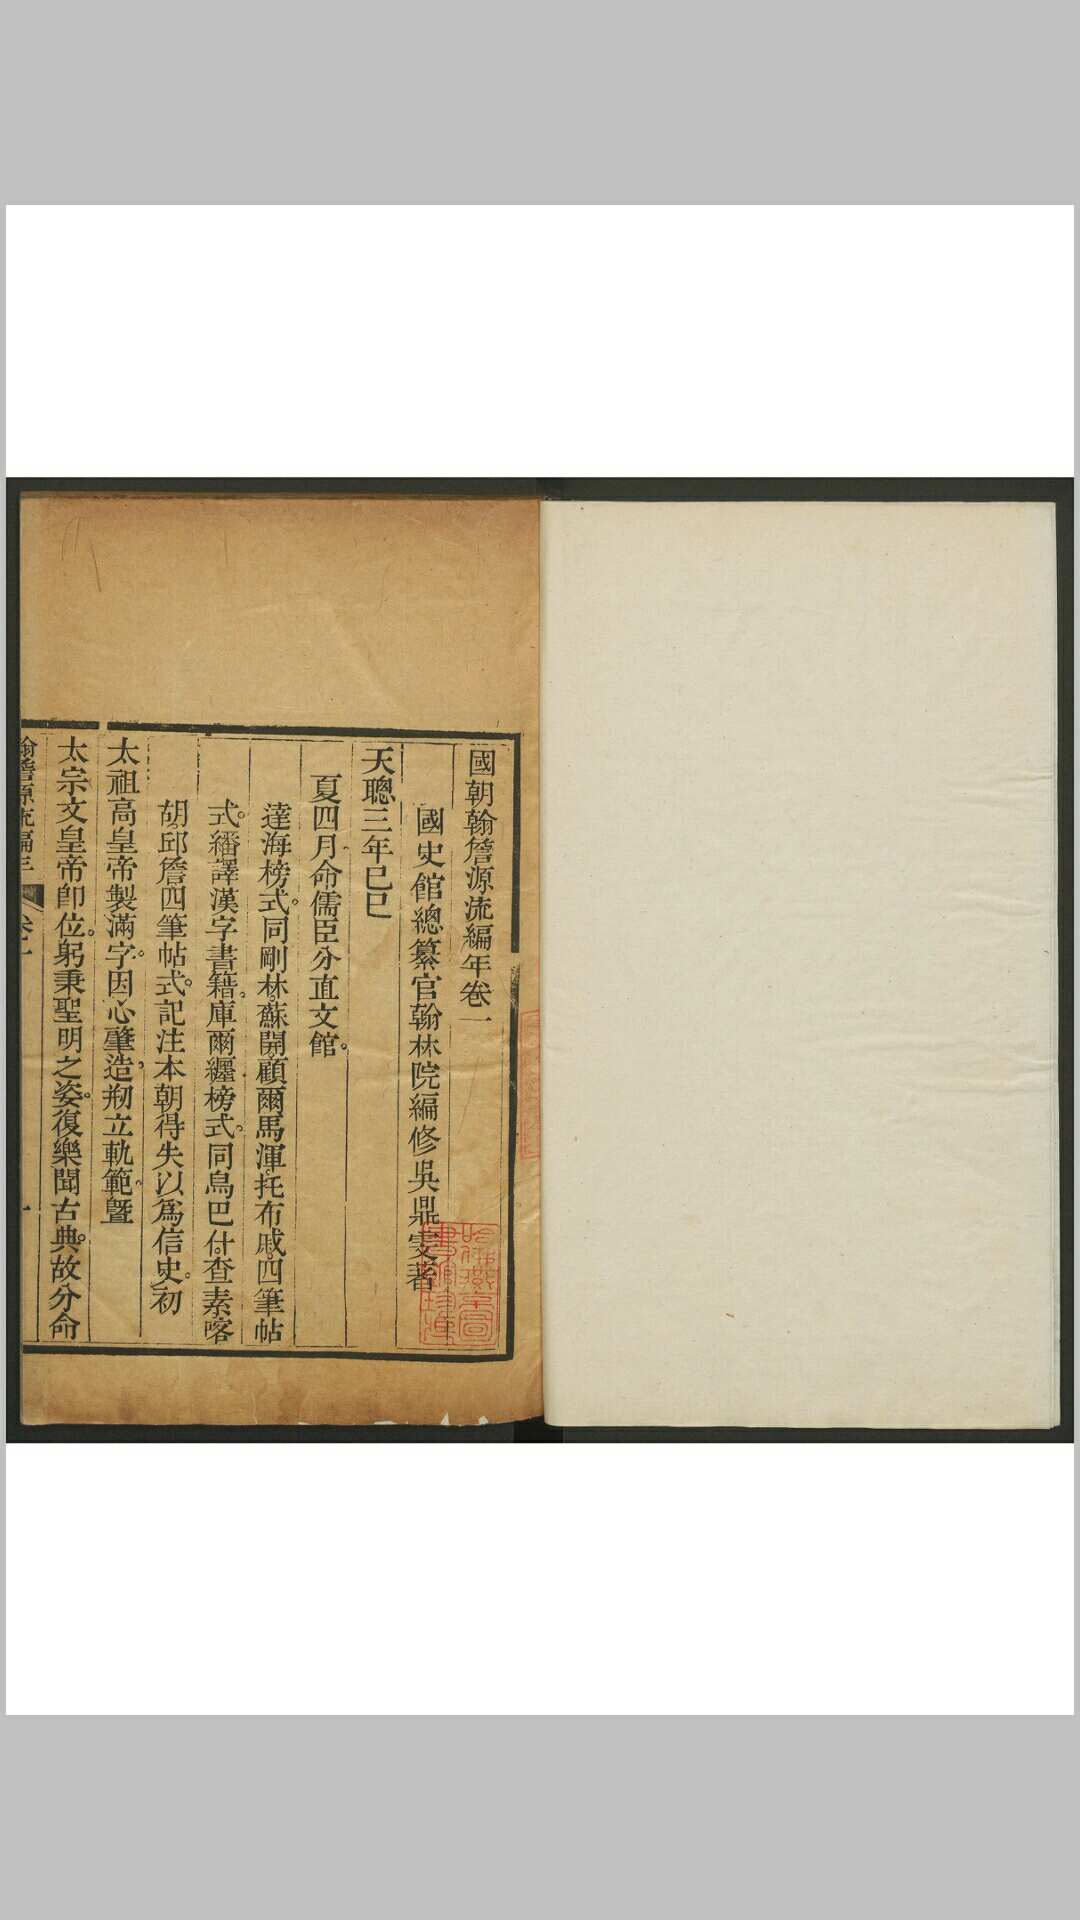 國朝翰詹源流編年卷一
國史館總纂官翰林院編修吳鼎雯著
天聰三年己巳
夏四月命儒臣分直文館。
達海榜式。同剛林。蘇開。顧爾馬渾。托布戚。四筆帖
式。繙譯漢字書籍。庫爾纏榜式。同烏巴什。查素喀
胡。邱詹四筆帖式。記注本朝得失以爲信史。初
太祖高皇帝製滿字。因心肇造。刱立軌範。曁
太宗文皇帝卽位。躬秉聖明之姿。復樂聞古典。故分命
翰詹源流編年 卷一 一